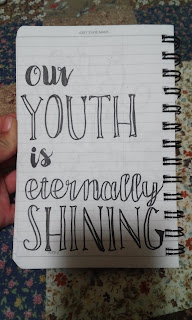 our
YOUTH
is
eternally
SHINING